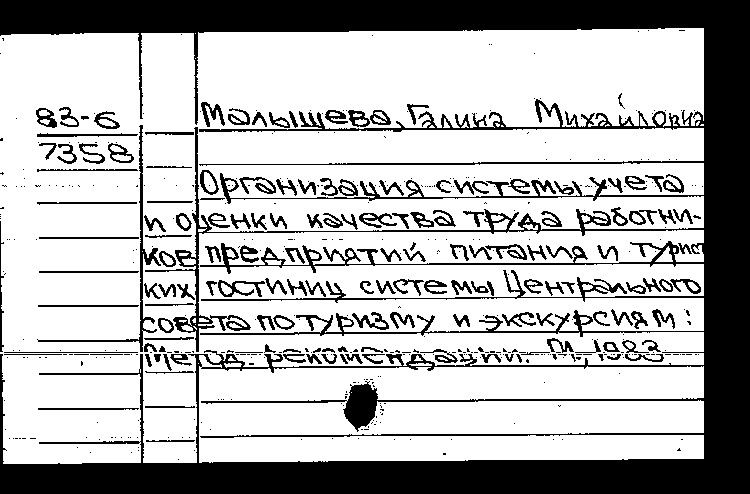 83-6 Малышева, Галина Михайловна
7358
Организация системы учета
и оценки качества труда работни-
ков предприятий питания и турист
ких гостиниц системы Центрального
совета по туризму и экскурсиям:
Метод. рекомендации. М., 1983